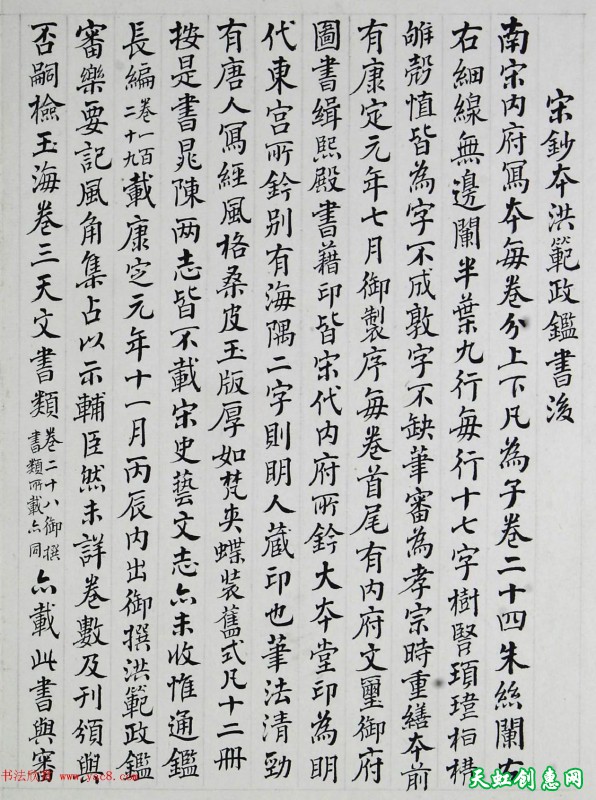 宋鈔本洪範政鑑書後
南宋内府寫本每卷分上下凡為子卷二十四朱絲闌左
右細線無邊闌半葉九行每行十七字樹豎頊瑋桓構
雊慤慎皆為字不成敦字不缺筆審為孝宗時重繕本前
有康定元年七月御製序每卷首尾有内府文璽御府
圖書緝熙殿書籍印皆宋代内府所鈐大本堂印為明
代東宮所鈐别有海隅二字則明人藏印也筆法清勁
有唐人寫經風格桑皮玉版厚如梵夾蝶裝舊式凡十二冊
按是書晁陳两志皆不載宋史藝文志亦未收惟通鑑
長編卷一百二十九載康定元年十一月丙辰内出御撰洪範政鑑
審樂要記風角集占以示輔臣然未詳卷數及刊頒與
否嗣檢玉海卷三天文書類卷二十八御撰書類所載亦同亦載此書與審
书法欣赏 www.yac8.com
天虹创意网